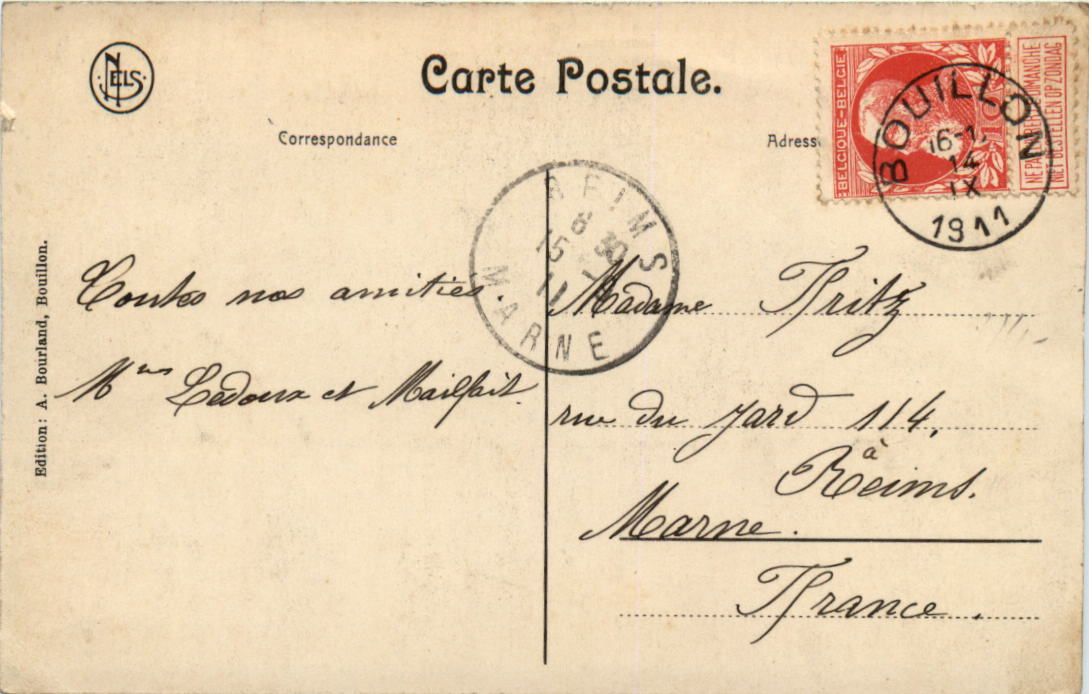 NELS
Carte Postale.
Correspondance
Adress
BELGIQUE-BELGIE
NE PAS LIVRER LE DIMANCHE
NIET BESTELLEN OP ZONDAG
BOUILLON
14
IX
1911
REIMS
6 30
15
11
MARNE
Toutes nos amitiés.
Mmes Ledoux et Mailfait.
Madame Fritz
rue du Jard 114,
à
Reims.
Marne.
France.
Edition: A. Bourland, Bouillon.